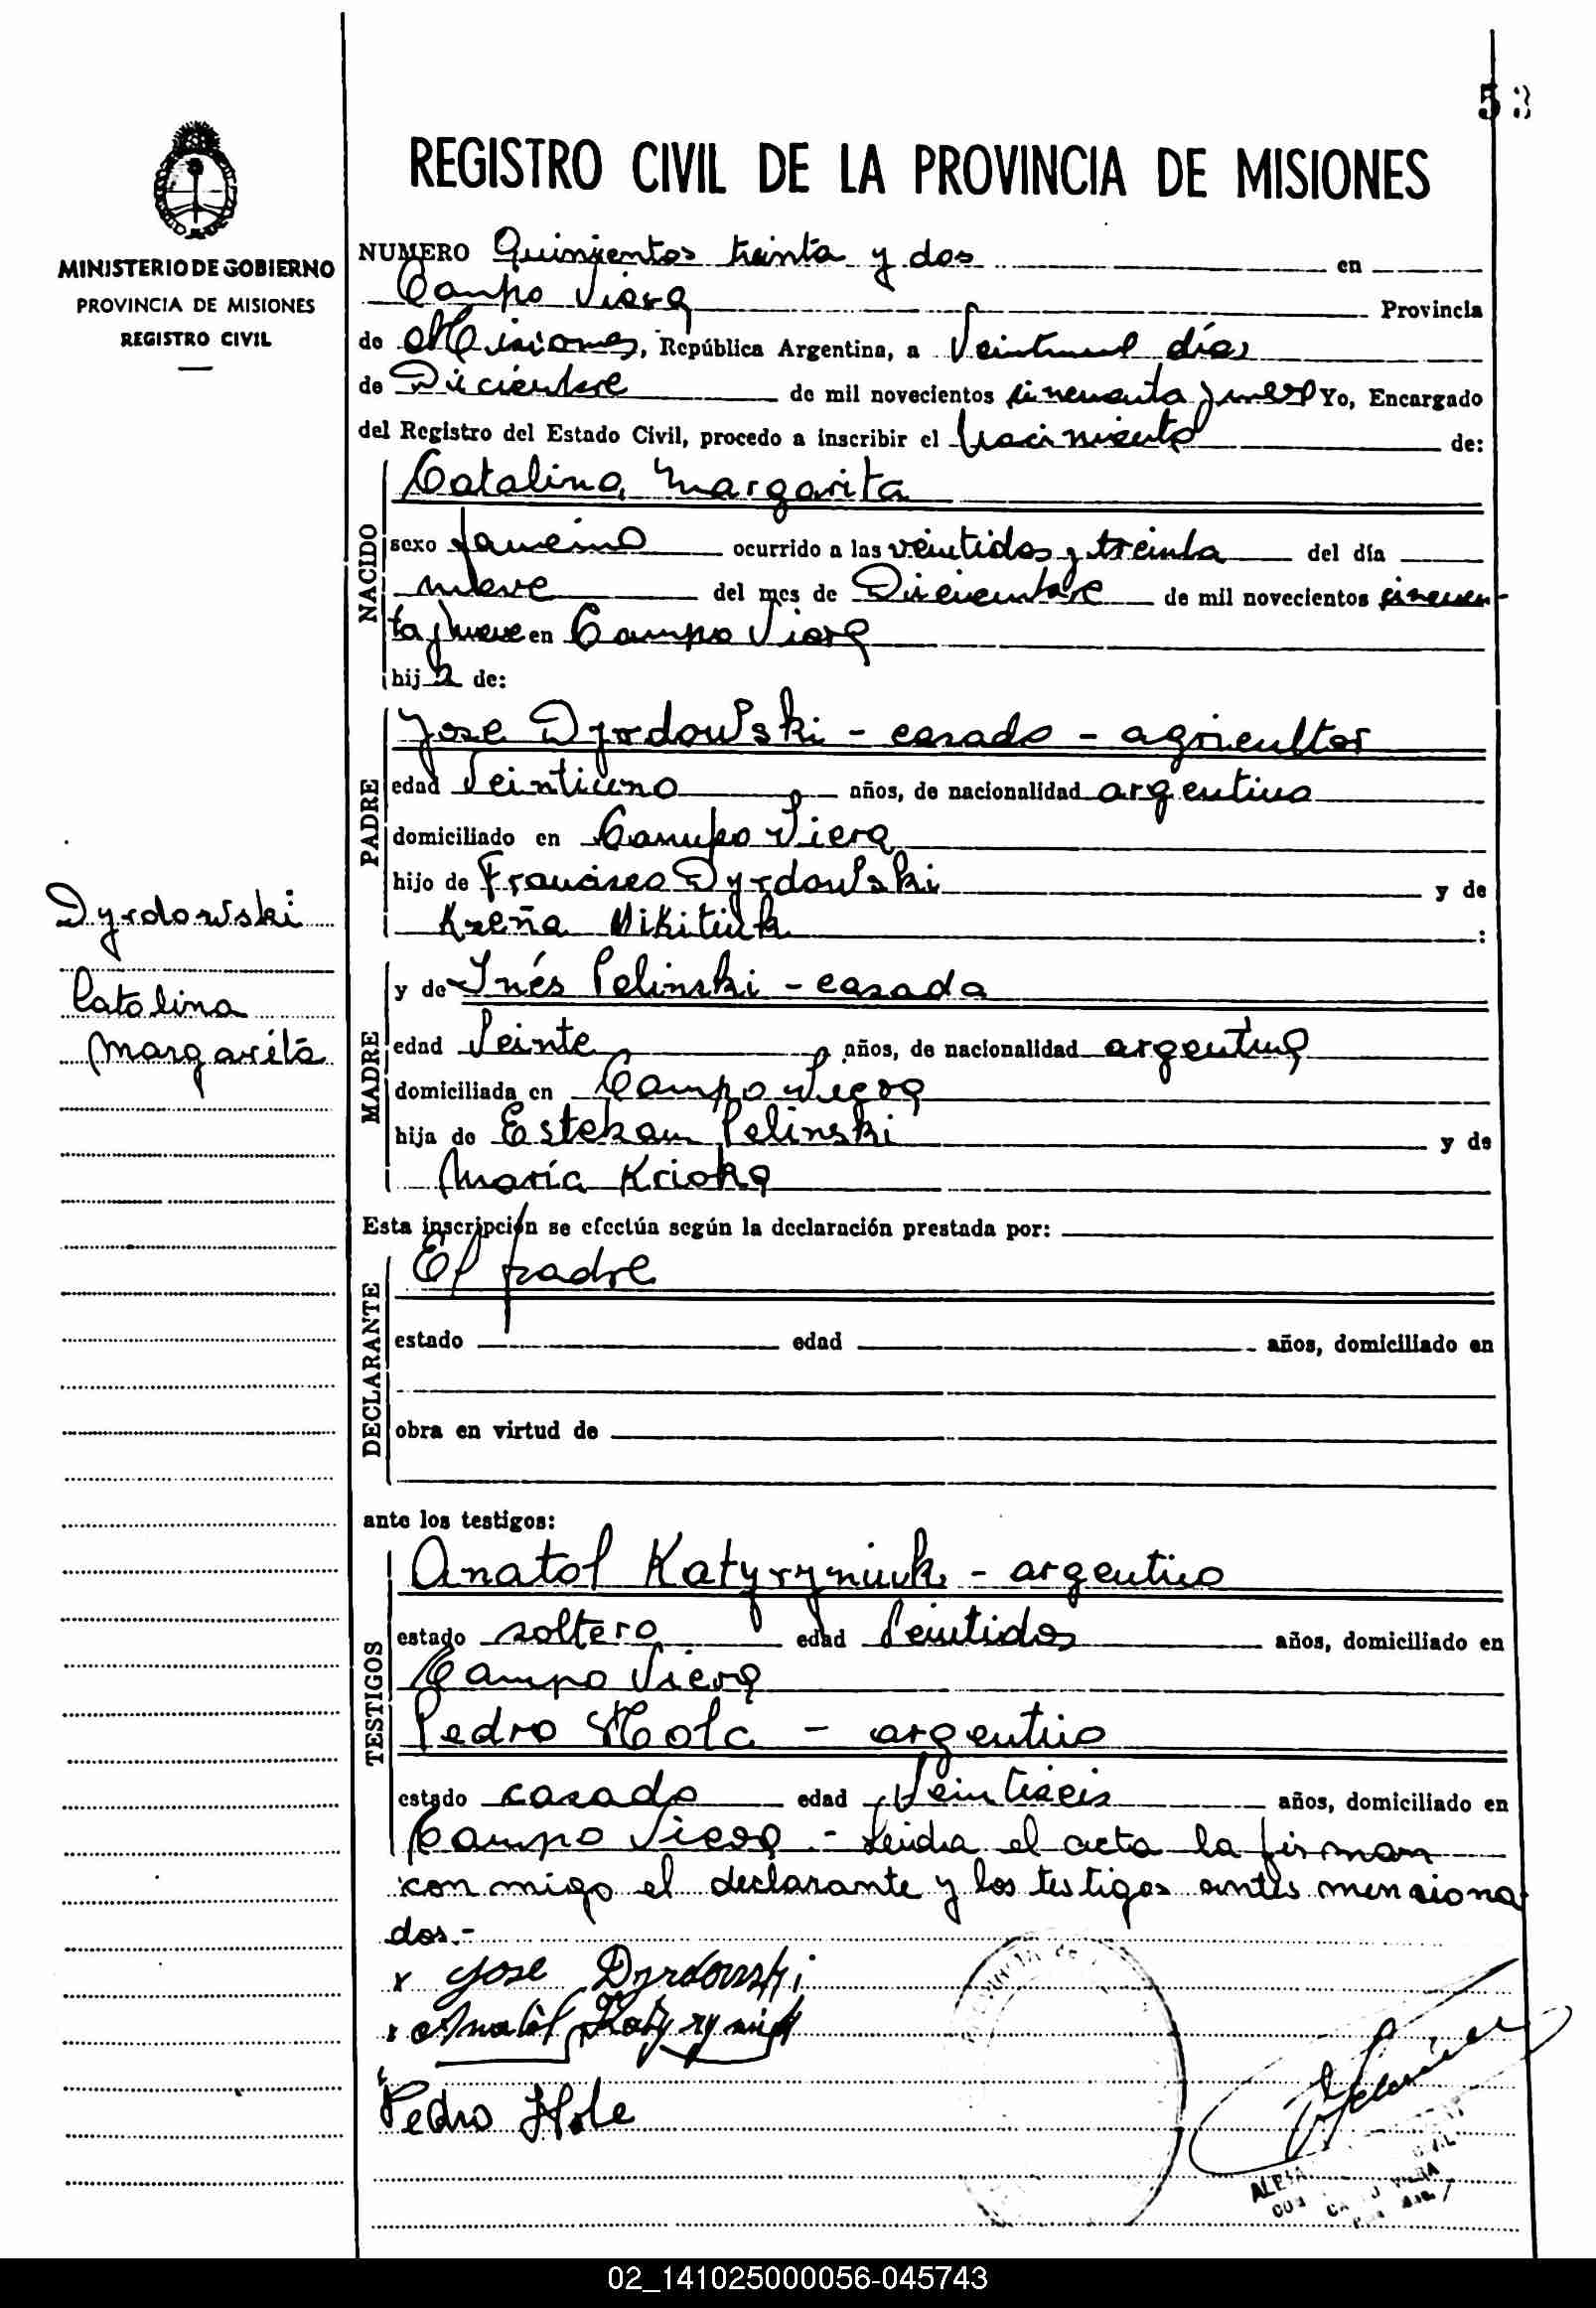 53
MINISTERIO DE GOBIERNO
PROVINCIA DE MISIONES
REGISTRO CIVIL
REGISTRO CIVIL DE LA PROVINCIA DE MISIONES
NUMERO Quinientos treinta y dos en
Campo Viera Provincia
de Misiones, República Argentina, a Veintinueve días
de Diciembre de mil novecientos cincuenta y nueve Yo, Encargado
del Registro del Estado Civil, procedo a inscribir el Nacimiento de:
NACIDO
Catalina Margarita
sexo femenino ocurrido a las veintidos y treinta del día
nueve del mes de Diciembre de mil novecientos cincuen-
ta y nueve en Campo Viera
hija de:
PADRE
Jose Dyrdowski - casado - agricultor
edad Veintiuno años, de nacionalidad argentina
domiciliado en Campo Viera
hijo de Francisco Dyrdowski y de
Kzeña Mikitiuk :
Dyrdowski
Catalina
Margarita
MADRE
y de Inés Pelinski - casada
edad Veinte años, de nacionalidad argentina
domiciliada en Campo Viera
hija de Esteban Pelinski y de
María Krioka
Esta inscripción se efectúa según la declaración prestada por:
DECLARANTE
El padre
estado edad años, domiciliado en
obra en virtud de
ante los testigos:
TESTIGOS
Anatol Katyryniuk - argentino
estado soltero edad Veintidos años, domiciliado en
Campo Viera
Pedro Hola - argentino
estado casado edad Veintiseis años, domiciliado en
Campo Viera - Leida el acta la firman
con migo el declarante y los testigos antes menciona
dos.-
x Jose Dyrdowski
x Anatol Katyryniuk
Pedro Hole
02_141025000056-045743